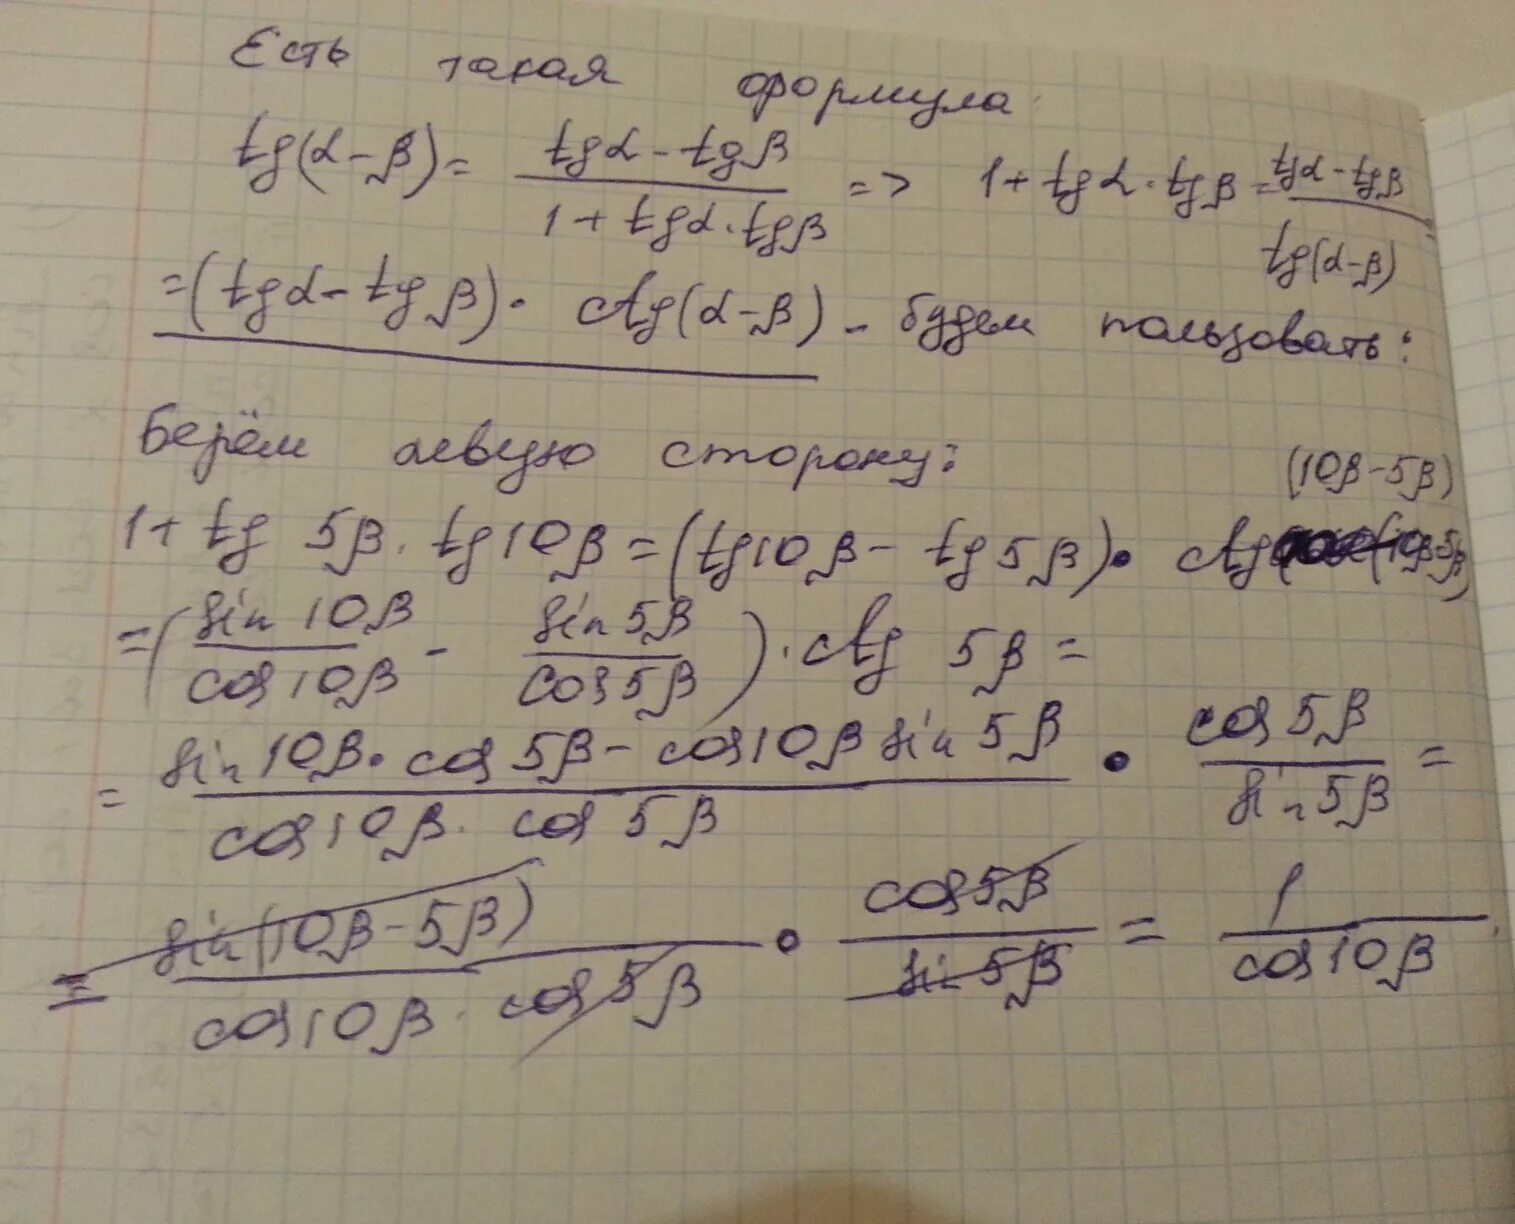 Есть такая формула:
tg(α-β) = (tgα - tgβ)/(1 + tgα·tgβ) => 1 + tgα·tgβ = (tgα - tgβ)/(tg(α-β))
=(tgα - tgβ)· ctg(α-β) - будем пользовать:
Берём левую сторону:
(10β - 5β)
1 + tg 5β · tg10β = (tg10β - tg5β) · ctg
= (sin 10β/cos 10β - sin 5β/cos 5β) · ctg 5β =
= (sin 10β · cos 5β - cos 10β sin 5β)/(cos 10β · cos 5β) · cos 5β/sin 5β =
= sin(10β - 5β)/(cos 10β · cos 5β) · cos 5β/sin 5β = 1/cos 10β